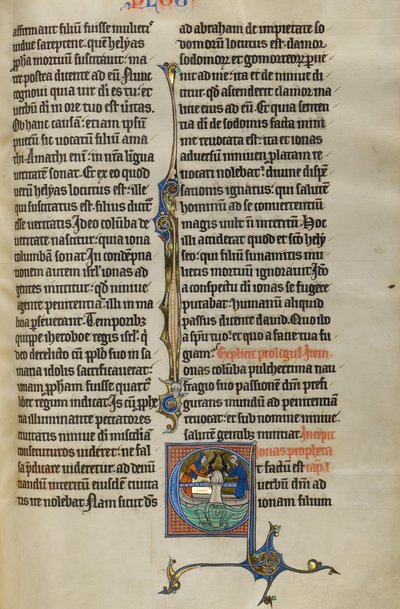 affirmant filiū fuisse mulieris
vidue sareptene · quē helyas
ꝓpha mortuū suscitauit · ma
tre postea dicente ad eū · Nunc
cognoui quia vir dī es tu · et
uerbū dī in ore tuo est ūitas ·
Ob hanc causā · etiam ipsū
puerū sic uocatū filiū ama
thi · Amathi enī · in nrā līgua
ueritatē sonat · Et ex eo quod
uerū helyas locutus est · ille
qui suscitatus est filius dicit
esse ueritatis · Ideo colūba de
ueritate nascitur · quia iona
columbā sonat · In condēpna
tionem autem isrl · ionas ad
gentes mittitur · qd niniue
agente penitentiā · illi in ma
licia ꝑseuerant · Temporibꝫ
quippe iheroboe regis isrl · qui
deo derelicto cū ꝓplo suo in sa
maria idolis sacrificauerat ·
ionam ꝓpham fuisse quartꝰ
liber regum indicat · Is cū ꝓphe
tia illuminante peccatores
ciuitatis niniue dī miscdia
conseruandos uideret · ne fal
sa ꝑdicare uideretur · ad denū
tiandū interitū eiusdē ciuita
tis ire nolebat · Nam sicut dꝰs
ad abraham de impietate so
domorū locutus est · clamor
sodomorꝝ et gomoreorꝝ ꝑue
nit ad me · ita et de niniue di
citur · qd ascenderit clamor ma
licie eius ad eū · Et quia senten
tia dī de sodomis facta mini
me reuocata est · ita et ionas
aduersū niniuen ꝓlatam re
uocari nolebat · diuine dispē
sationis ignarus · qui salutē
hominū ad se conuertentiū
magis uult · quā interitū · Hoc
illi acciderat quod et scō hely
seo · qui filiū sunamitis mu
lieris mortuū ignorauit · Itē
a conspectu dī ionas se fugere
putabat · humanū aliquid
passus dicente dauid · Quo ibo
a spū tuo · et quo a facie tua fu
giam · Explicit prologus · Item
Ionas colūba pulcherrima nau
fragio suo passionē dnī prefi
gurans mundū ad penitentiā
reuocat · et sub nomine niniue ·
salutem gentibꝫ nuntiat · Incipit
ionas propheta
Et factū est cap · i ·
uerbū dnī ad
ionam filium